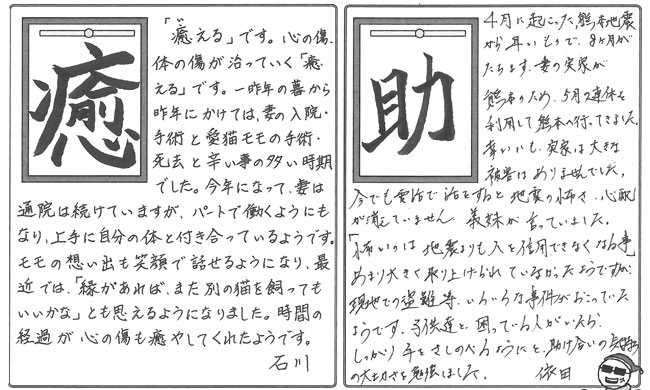 癒
「癒える」です。心の傷、
体の傷が治っていく「癒
える」です。一昨年の暮から
昨年にかけては、妻の入院・
手術と愛猫モモの手術・
死去と辛い事の多い時期
でした。今年になって、妻は
通院は続けていますが、パートで働くようにも
なり、上手に自分の体と付き合っているようです。
モモの想い出も笑顔で話せるようになり、最
近では、「縁があれば、また別の猫を飼っても
いいかな」とも思えるようになりました。時間の
経過が心の傷も癒やしてくれたようです。
石川
助
4月に起こった熊本地震
から早いもので、8ヶ月が
たちます。妻の実家が
熊本のため、5月2連休を
利用して熊本へ行ってきました。
幸いにも、実家は大きな
被害はありませんでした。
今でも電話で話をすると地震の怖さ、心配
が消えていません 義妹が言っていました。
「怖いのは地震よりも人を信用できなくなる事」
あまり大きく取り上げられていなかったようですが
現地での盗難等、いろいろな事件がおこっていた
ようです。子供達と、困っている人がいたら、
しっかり手をさしのべるようにと、助け合いの気持ち
の大切さを勉強しました。
依田